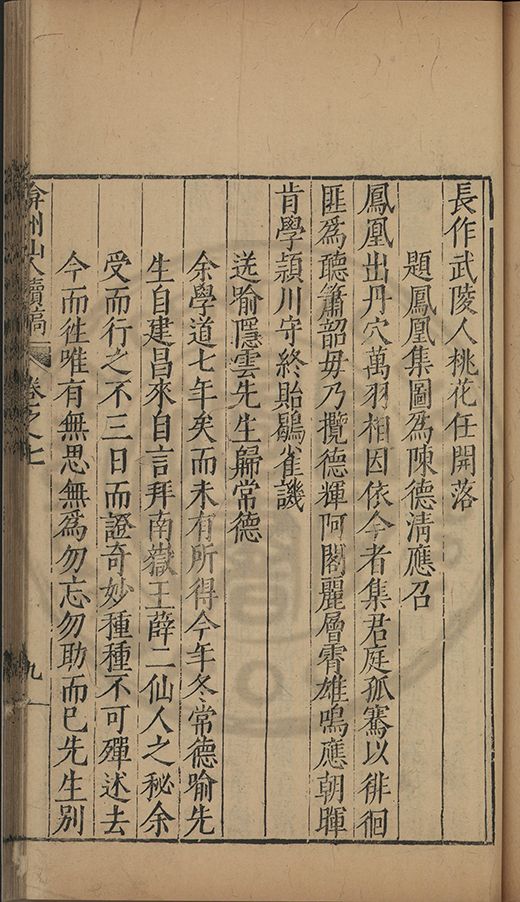 長作武陵人桃花任開落
題鳳凰集圖為陳德清應召
鳳凰出丹穴萬羽相因依今者集君庭孤騫以徘徊
匪為聽簫韶毋乃攬德輝阿閣麗層霄雄鳴應朝暉
肯學潁川守終貽鶡雀譏
送喻隱雲先生歸常德
余學道七年矣而未有所得今年冬常德喻先
生自建昌來自言拜南嶽王薛二仙人之秘余
受而行之不三日而證奇妙種種不可殫述去
今而往唯有無思無為勿忘勿助而已先生別
弇州山人續稿 卷之七 九